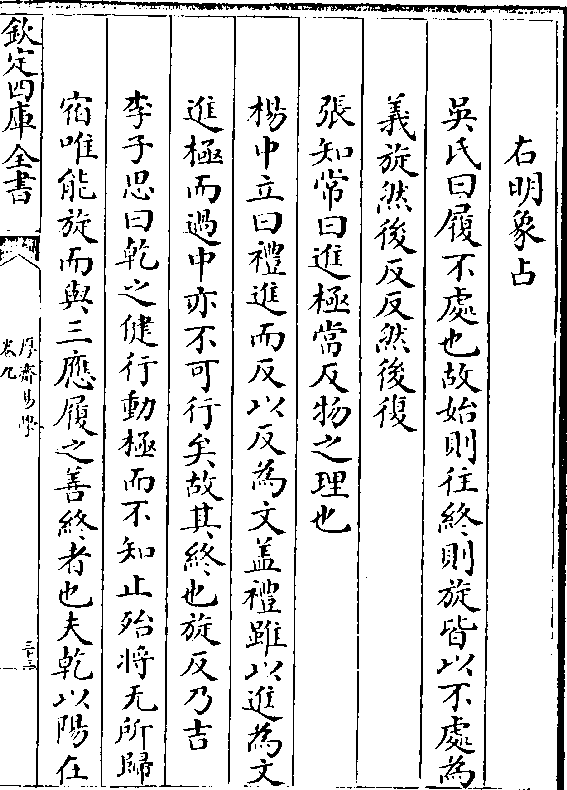 右明象占
吳氏曰履不處也故始則往終則旋皆以不處為
義旋然後反反然後復
張知常曰進極當反物之理也
楊中立曰禮進而反以反為文盖禮雖以進為文
進極而過中亦不可行矣故其終也旋反乃吉
李子思曰乾之健行動極而不知止殆将无所歸
宿唯能旋而與三應履之善終者也夫乾以陽在
欽定四庫全書
厚齋易學
卷九
三十三